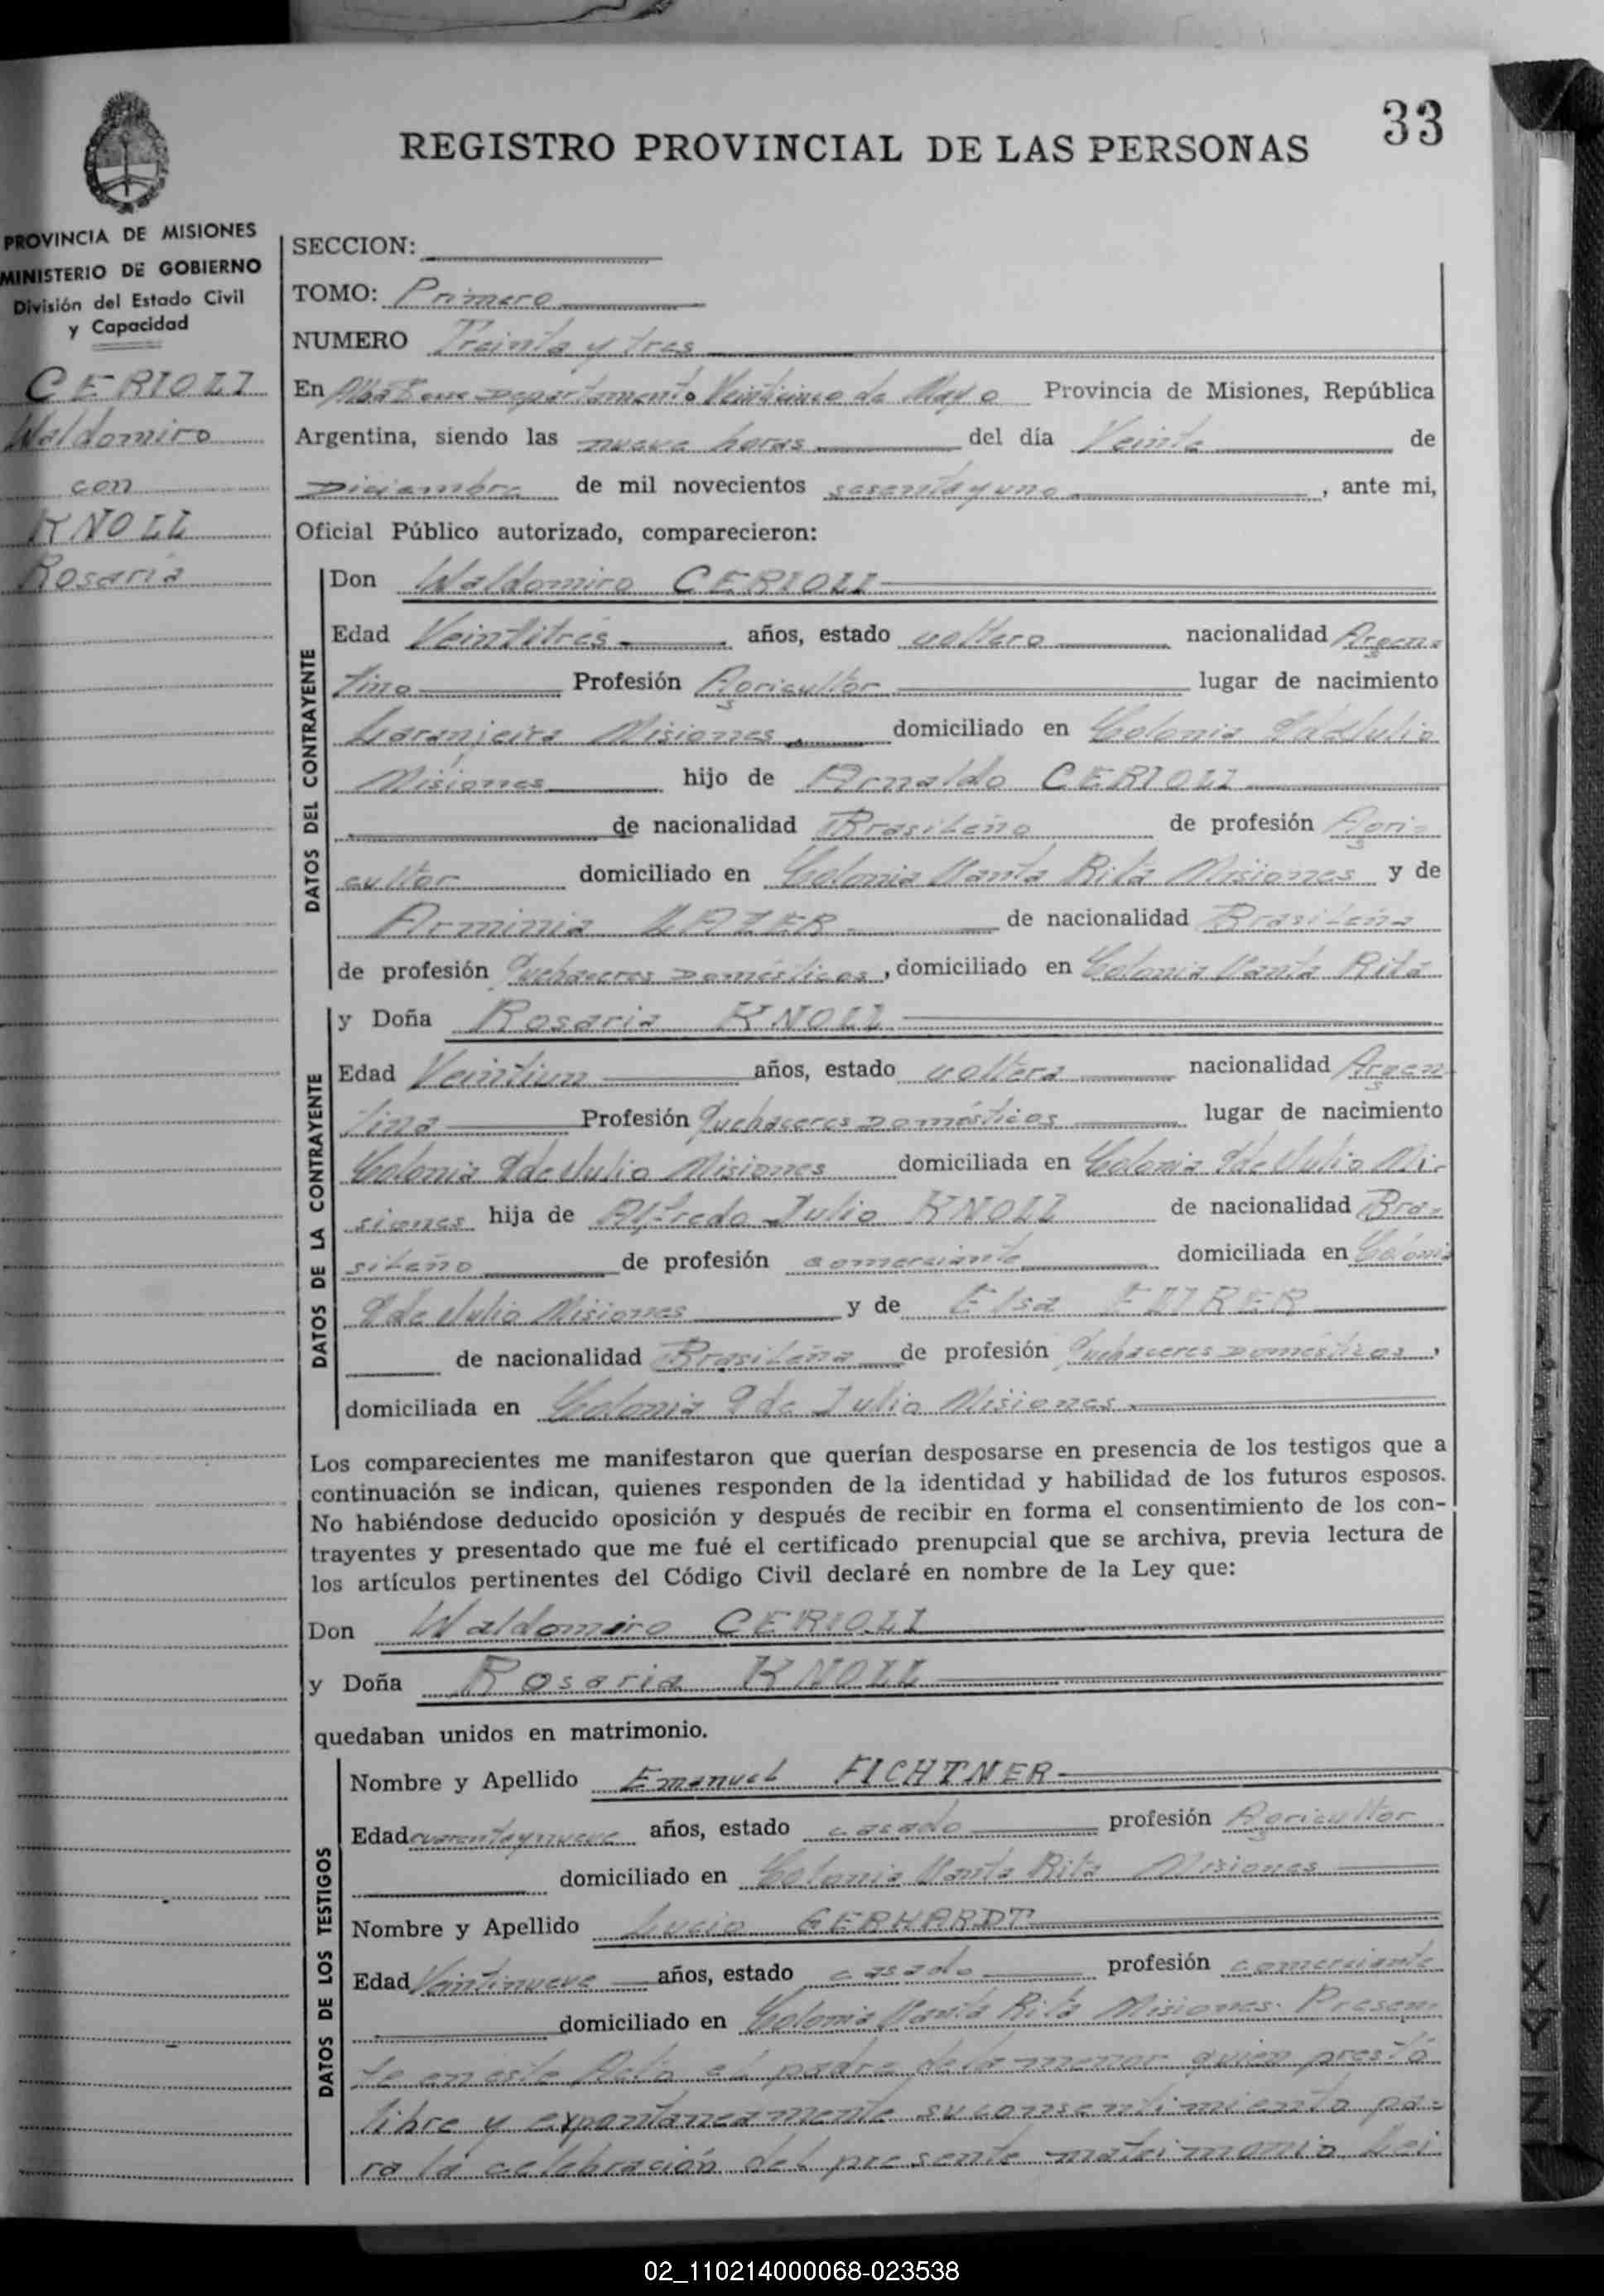 33
REGISTRO PROVINCIAL DE LAS PERSONAS
PROVINCIA DE MISIONES
MINISTERIO DE GOBIERNO
División del Estado Civil
y Capacidad
CERIOLI
Waldomiro
con
KNOLL
Rosaria
SECCION:
TOMO: Primero
NUMERO Treinta y tres
En Alba Posse Departamento Veinticinco de Mayo Provincia de Misiones, República
Argentina, siendo las nueve horas del día Veinte de
Diciembre de mil novecientos sesenta y uno, ante mi,
Oficial Público autorizado, comparecieron:
DATOS DEL CONTRAYENTE
Don Waldomiro CERIOLI
Edad Veintitrés años, estado soltero nacionalidad Argen-
tino Profesión Agricultor lugar de nacimiento
Laranjeira Misiones domiciliado en Colonia 9 de Julio
Misiones hijo de Arnaldo CERIOLI
de nacionalidad Brasileño de profesión Agri-
cultor domiciliado en Colonia Santa Rita Misiones y de
Arminia LAZER de nacionalidad Brasileña
de profesión Quehaceres Domésticos, domiciliado en Colonia Santa Rita
DATOS DE LA CONTRAYENTE
y Doña Rosaria KNOLL
Edad Veintiun años, estado soltera nacionalidad Argen
tina Profesión Quehaceres Domésticos lugar de nacimiento
Colonia 9 de Julio Misiones domiciliada en Colonia 9 de Julio Mi-
siones hija de Alfredo Julio KNOLL de nacionalidad Bra-
sileño de profesión comerciante domiciliada en Colonia
9 de Julio Misiones y de Elsa
de nacionalidad Brasileña de profesión Quehaceres Domésticos,
domiciliada en Colonia 9 de Julio Misiones.
Los comparecientes me manifestaron que querían desposarse en presencia de los testigos que a
continuación se indican, quienes responden de la identidad y habilidad de los futuros esposos.
No habiéndose deducido oposición y después de recibir en forma el consentimiento de los con-
trayentes y presentado que me fué el certificado prenupcial que se archiva, previa lectura de
los artículos pertinentes del Código Civil declaré en nombre de la Ley que:
Don Waldomiro CERIOLI
y Doña Rosaria KNOLL
quedaban unidos en matrimonio.
DATOS DE LOS TESTIGOS
Nombre y Apellido Emanuel FICHTNER
Edad cuarenta y nueve años, estado casado profesión Agricultor
domiciliado en Colonia Santa Rita Misiones
Nombre y Apellido Lucio GERHARDT
Edad Veintinueve años, estado casado profesión comerciante
domiciliado en Colonia Santa Rita Misiones. Presen-
te en este Acto el padre de la menor quien prestó
libre y expontaneamente su consentimiento pa-
ra la celebración del presente matrimonio Lei
02_110214000068-023538